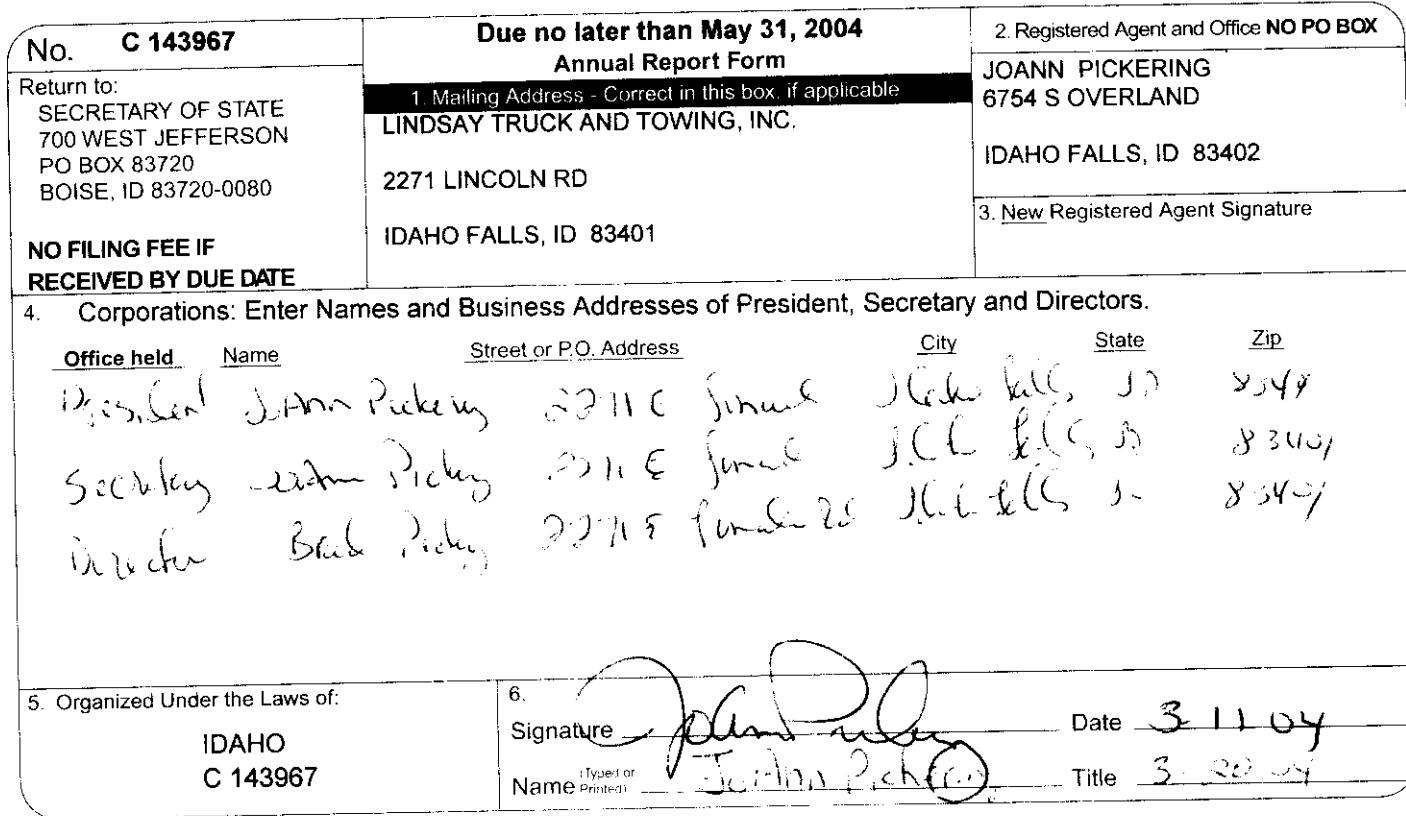 No. C 143967
Return to:
SECRETARY OF STATE
700 WEST JEFFERSON
PO BOX 83720
BOISE, ID 83720-0080
NO FILING FEE IF
RECEIVED BY DUE DATE
Due no later than May 31, 2004
Annual Report Form
1. Mailing Address - Correct in this box, if applicable
LINDSAY TRUCK AND TOWING, INC.
2271 LINCOLN RD
IDAHO FALLS, ID 83401
2. Registered Agent and Office NO PO BOX
JOANN PICKERING
6754 S OVERLAND
IDAHO FALLS, ID 83402
3. New Registered Agent Signature
4. Corporations: Enter Names and Business Addresses of President, Secretary and Directors.
Office held Name Street or P.O. Address City State Zip
President JoAnn Pickering
Secretary 83401
Director 83401
5. Organized Under the Laws of:
IDAHO
C 143967
6.
Signature Date 3 11 04
Name (Typed or Printed) JoAnn Title 3 20 04